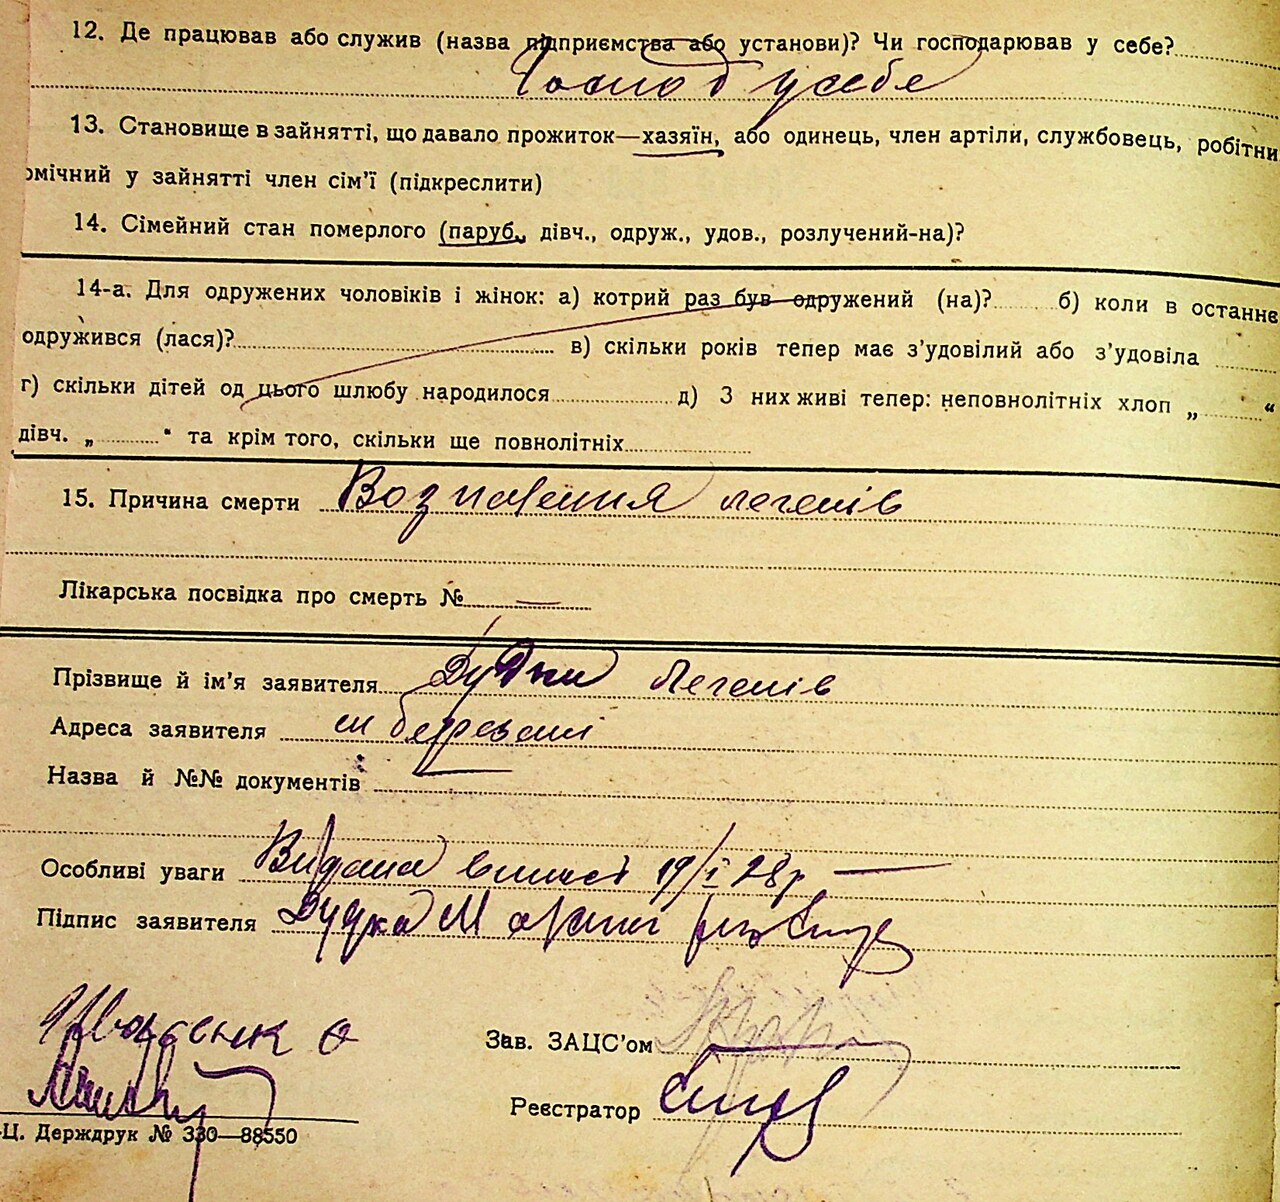 12. Де працював або служив (назва підприємства або установи)? Чи господарював у себе?
Господ у себе
13. Становище в зайнятті, що давало прожиток—хазяїн, або одинець, член артіли, службовець, робітни
омічний у зайнятті член сім’ї (підкреслити)
14. Сімейний стан померлого (паруб., дівч., одруж., удов., розлучений-на)?
14-а. Для одружених чоловіків і жінок: а) котрий раз був одружений (на)? б) коли в останнє
одружився (лася)? в) скільки років тепер має з’удовілий або з’удовіла
г) скільки дітей од цього шлюбу народилося д) З них живі тепер: неповнолітніх хлоп „ “
дівч. „ “ та крім того, скільки ще повнолітніх
15. Причина смерти легенів
Лікарська посвідка про смерть № —
Прізвище й ім’я заявителя легенів
Адреса заявителя березані
Назва й №№ документів
Особливі уваги Видана 19/I 28р —
Підпис заявителя Дудка
Зав. ЗАЦС’ом
Реєстратор
-Ц. Держдрук № 330—88550